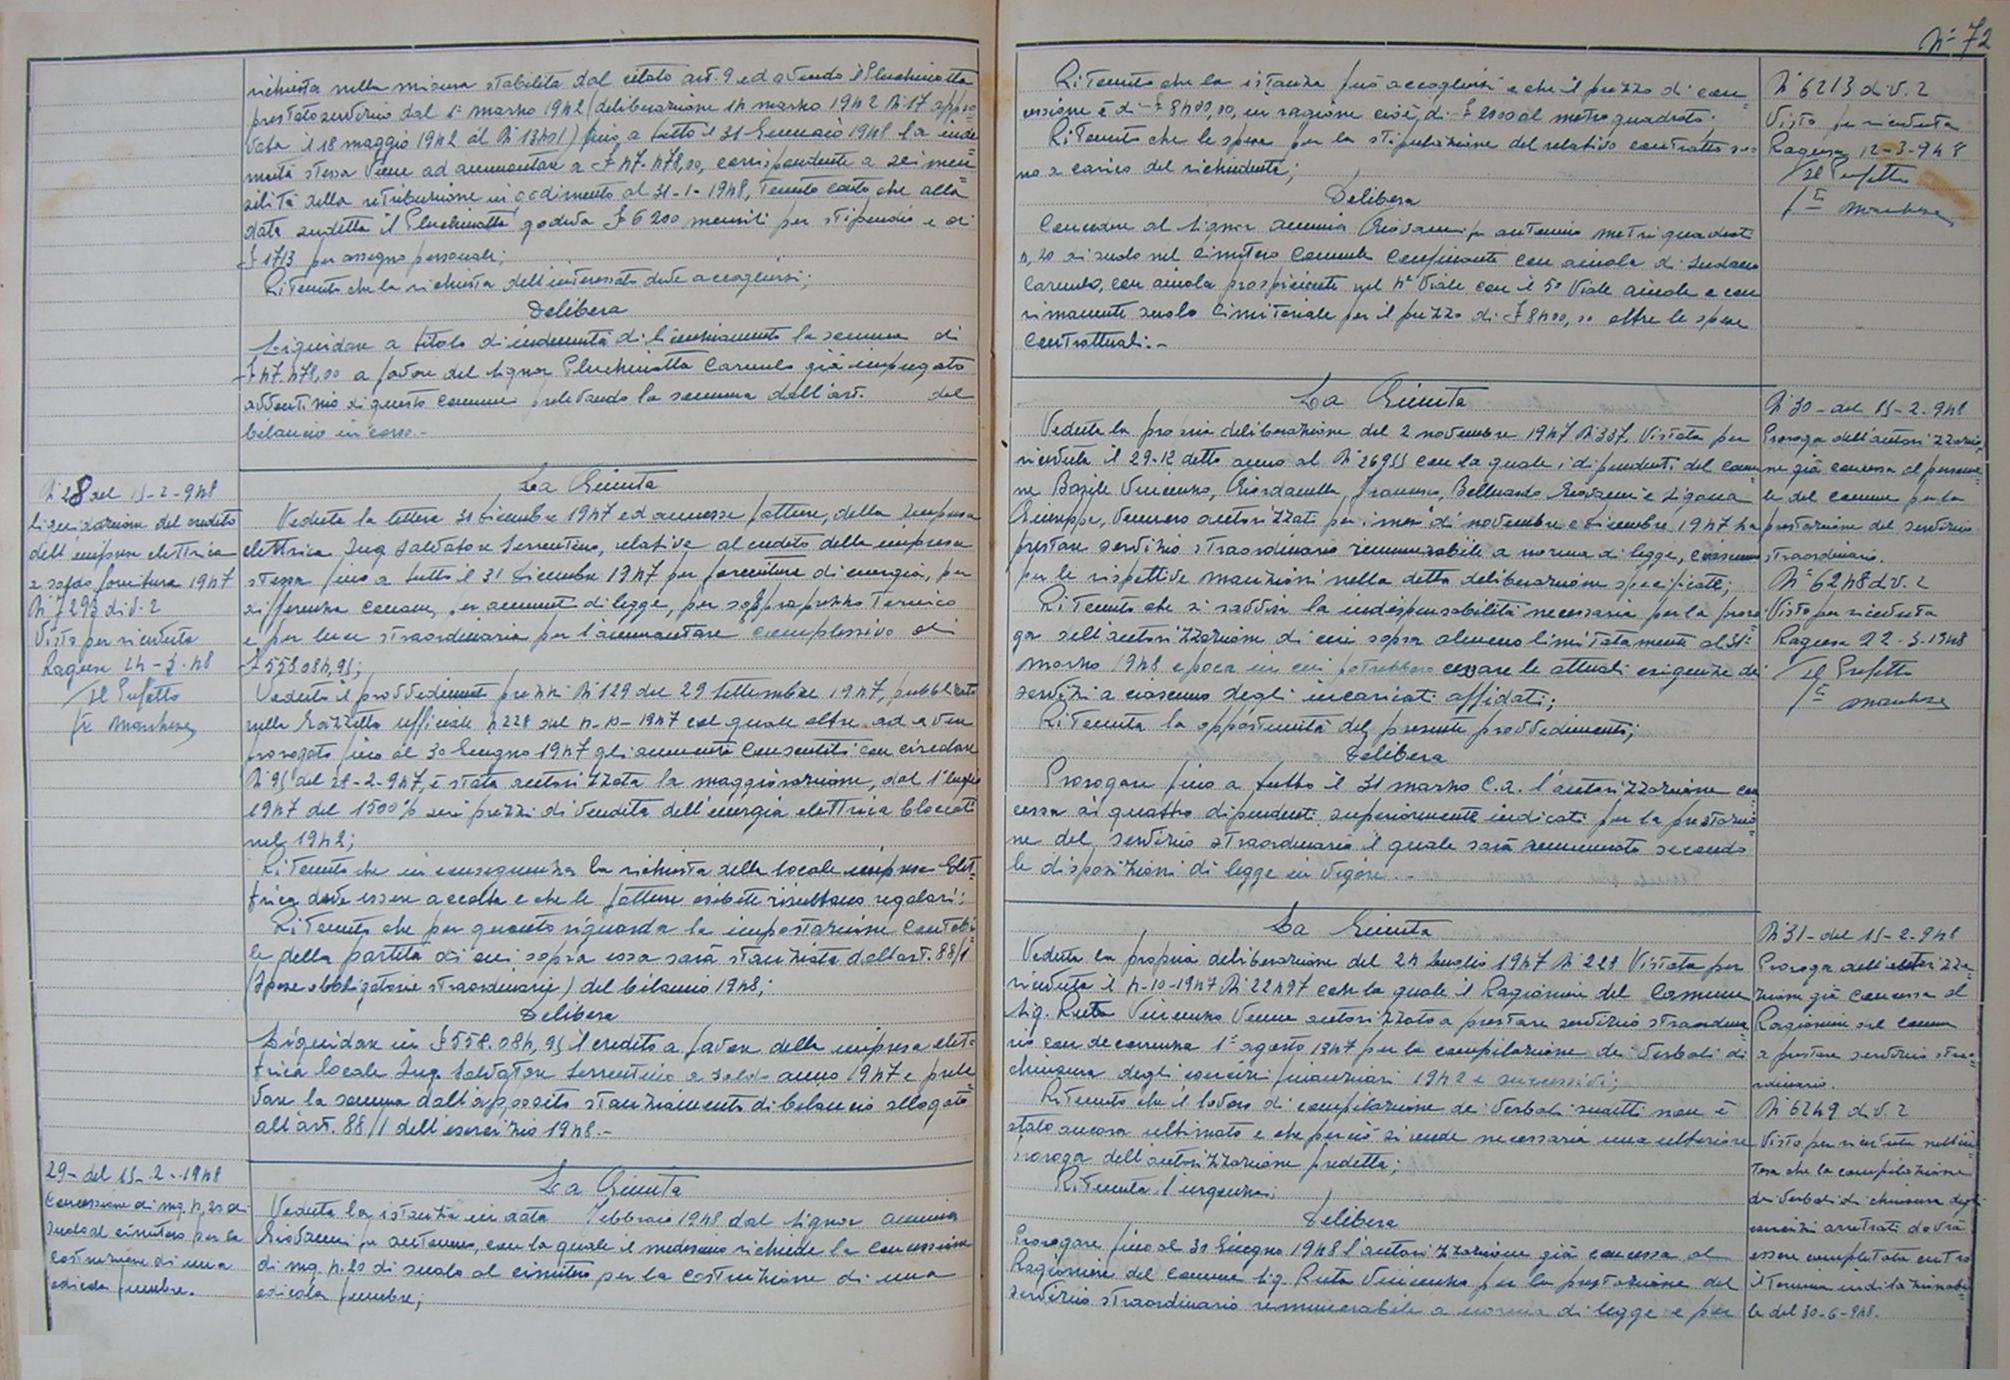 richiesta nella misura stabilita dal citato art. 9 ed avendo il Pluchinotta
prestato servizio dal 1° marzo 1942 (deliberazione 14 marzo 1942 N° 17 appro=
vata il 18 maggio 1942 al N° 13401) fino a tutto il 31 Gennaio 1948 la inde=
nnità stessa viene ad ammontare a £ 47.478,00, corrispondente a sei men=
silità della retribuzione in godimento al 31-1-1948, tenuto conto che alla
data sudetta il Pluchinotta godeva £ 6200 mensili per stipendio e di
£ 1713 per assegno personale;
Ritenuto che la richiesta dell'interessato deve accogliersi;
Delibera
Liquidare a titolo di indennità di licenziamento la somma di
£ 47.478,00 a favore del Signor Pluchinotta Carmelo già impiegato
avventizio di questo Comune prelevando la somma dall'art. del
bilancio in corso.-
N° 28 del 15-2-948
Liquidazione del credito
dell'impresa elettrica
a saldo forniture 1947
di v. 2
Visto per ricevuta
Ragusa 24-3-48
Il Prefetto
La Giunta
Veduta la lettera 31 Dicembre 1947 ed annesse fatture, della Impresa
elettrica Ing. Salvatore Serrentino, relative al credito della impresa
stessa fino a tutto il 31 Dicembre 1947 per forniture di energia, per
differenza canone, per aumenti di legge, per soprapprezzo termico
e per luce straordinaria per l'ammontare complessivo di
£ 558.084,95;
Veduto il provvedimento prezzi N° 129 del 29 Settembre 1947, pubblicato
nella Gazzetta ufficiale n. 228 del 4-10-1947 col quale oltre ad aver
prorogato fino al 30 Giugno 1947 gli aumenti consentiti con circolare
N° 95 del 28-2-947, è stata autorizzata la maggiorazione, dal 1° luglio
1947 del 1500% sui prezzi di vendita dell'energia elettrica bloccati
nel 1942;
Ritenuto che in conseguenza la richiesta della locale impresa Elet=
trica deve essere accolta e che le fatture esibite risultano regolari;
Ritenuto che per quanto riguarda la impostazione contabi=
le della partita di cui sopra essa sarà stanziata dall'art. 88/1
(Spese obbligatorie straordinarie) del bilancio 1948;
Delibera
Liquidare in £ 558.084,95 il credito a favore della impresa elet=
trica locale Ing. Salvatore Serrentino a saldo anno 1947 e prele=
vare la somma dall'apposito stanziamento di bilancio allogato
all'art. 88/1 dell'esercizio 1948.-
29- del 15-2-1948
Concessione di mq. 4,20 di
suolo al cimitero per la
costruzione di una
edicola funebre.
La Giunta
Veduta la istanza in data Febbraio 1948 del Signor
Giovanni fu Antonino, con la quale il medesimo richiede la concessione
di mq. 4.20 di suolo al cimitero per la costruzione di una
edicola funebre;
N° 72
Ritenuto che la istanza può accogliersi e che il prezzo di con=
cessione è di £ 8400,00, in ragione cioè, di £ 2000 al metro quadrato.
Ritenuto che le spese per la stipulazione del relativo contratto so=
no a carico del richiedente;
Delibera
Concedere al Signor Giovanni fu Antonino metri quadrati
4,20 di suolo nel Cimitero Comunale confinante con aiuola di
Carmelo, con aiuola prospiciente nel 4° Viale con il 5° Viale aiuole e con
rimanente suolo Cimiteriale per il prezzo di £ 8400,00 oltre le spese
contrattuali.-
N° 6213 di v. 2
Visto per ricevuta
Ragusa 12-3-948
Il Prefetto
La Giunta
Veduta la propria deliberazione del 2 novembre 1947 N° 337, Vistata per
ricevuta il 29-12 detto anno al N° 26955 con la quale i dipendenti del comu=
ne Basile Vincenzo, Giordanella Francesco, Belluardo Giovanni e Ligama
Giuseppe, vennero autorizzati per i mesi di novembre e Dicembre 1947 ha
prestare servizio straordinario remunerabile a norma di legge, ciascuno
per le rispettive mansioni nella detta deliberazione specificate;
Ritenuto che si ravvisa la indispensabilità necessaria per la proro=
ga dell'autorizzazione di cui sopra almeno limitatamente al 31
marzo 1948 epoca in cui potrebbero cessare le attuali esigenze dei
servizi a ciascuno degli incaricati affidati;
Ritenuta la opportunità del presente provvedimento;
Delibera
Prorogare fino a tutto il 31 marzo c.a. l'autorizzazione con=
cessa ai quattro dipendenti superiormente indicati per la prestazio=
ne del servizio straordinario il quale sarà remunerato secondo
le disposizioni di legge in vigore.-
N° 30- del 15-2-948
Proroga dell'autorizzazio=
ne già concessa al persona=
le del comune per la
prestazione del servizio
straordinario.
N° 6248 di v. 2
Visto per ricevuta
Ragusa 22-3-1948
Il Prefetto
La Giunta
Veduta la propria deliberazione del 24 Luglio 1947 N° 228 Vistata per
ricevuta il 4-10-1947 N° 22497 con la quale il Ragioniere del Comune
Sig. Ruta Vincenzo venne autorizzato a prestare servizio straordina=
rio con decorrenza 1° agosto 1947 per la compilazione dei verbali di
chiusura degli esercizi finanziari 1942 e successivi;
Ritenuto che il lavoro di compilazione dei verbali sudetti non è
stato ancora ultimato e che perciò si rende necessaria una ulteriore
proroga dell'autorizzazione predetta;
Ritenuta l'urgenza;
Delibera
Prorogare fino al 30 Giugno 1948 l'autorizzazione già concessa al
Ragioniere del comune Sig. Ruta Vincenzo per la prestazione del
servizio straordinario remunerabile a norma di legge e per
N° 31- del 15-2-948
Proroga dell'autorizza=
zione già concessa al
Ragioniere del comune
a prestare servizio stra=
ordinario.
N° 6249 di v. 2
Visto per ricevuta nell'in=
tesa che la compilazione
dei verbali di chiusura degli
esercizi arretrati dovrà
essere completata entro
il termine indilazionabi=
le del 30-6-948.